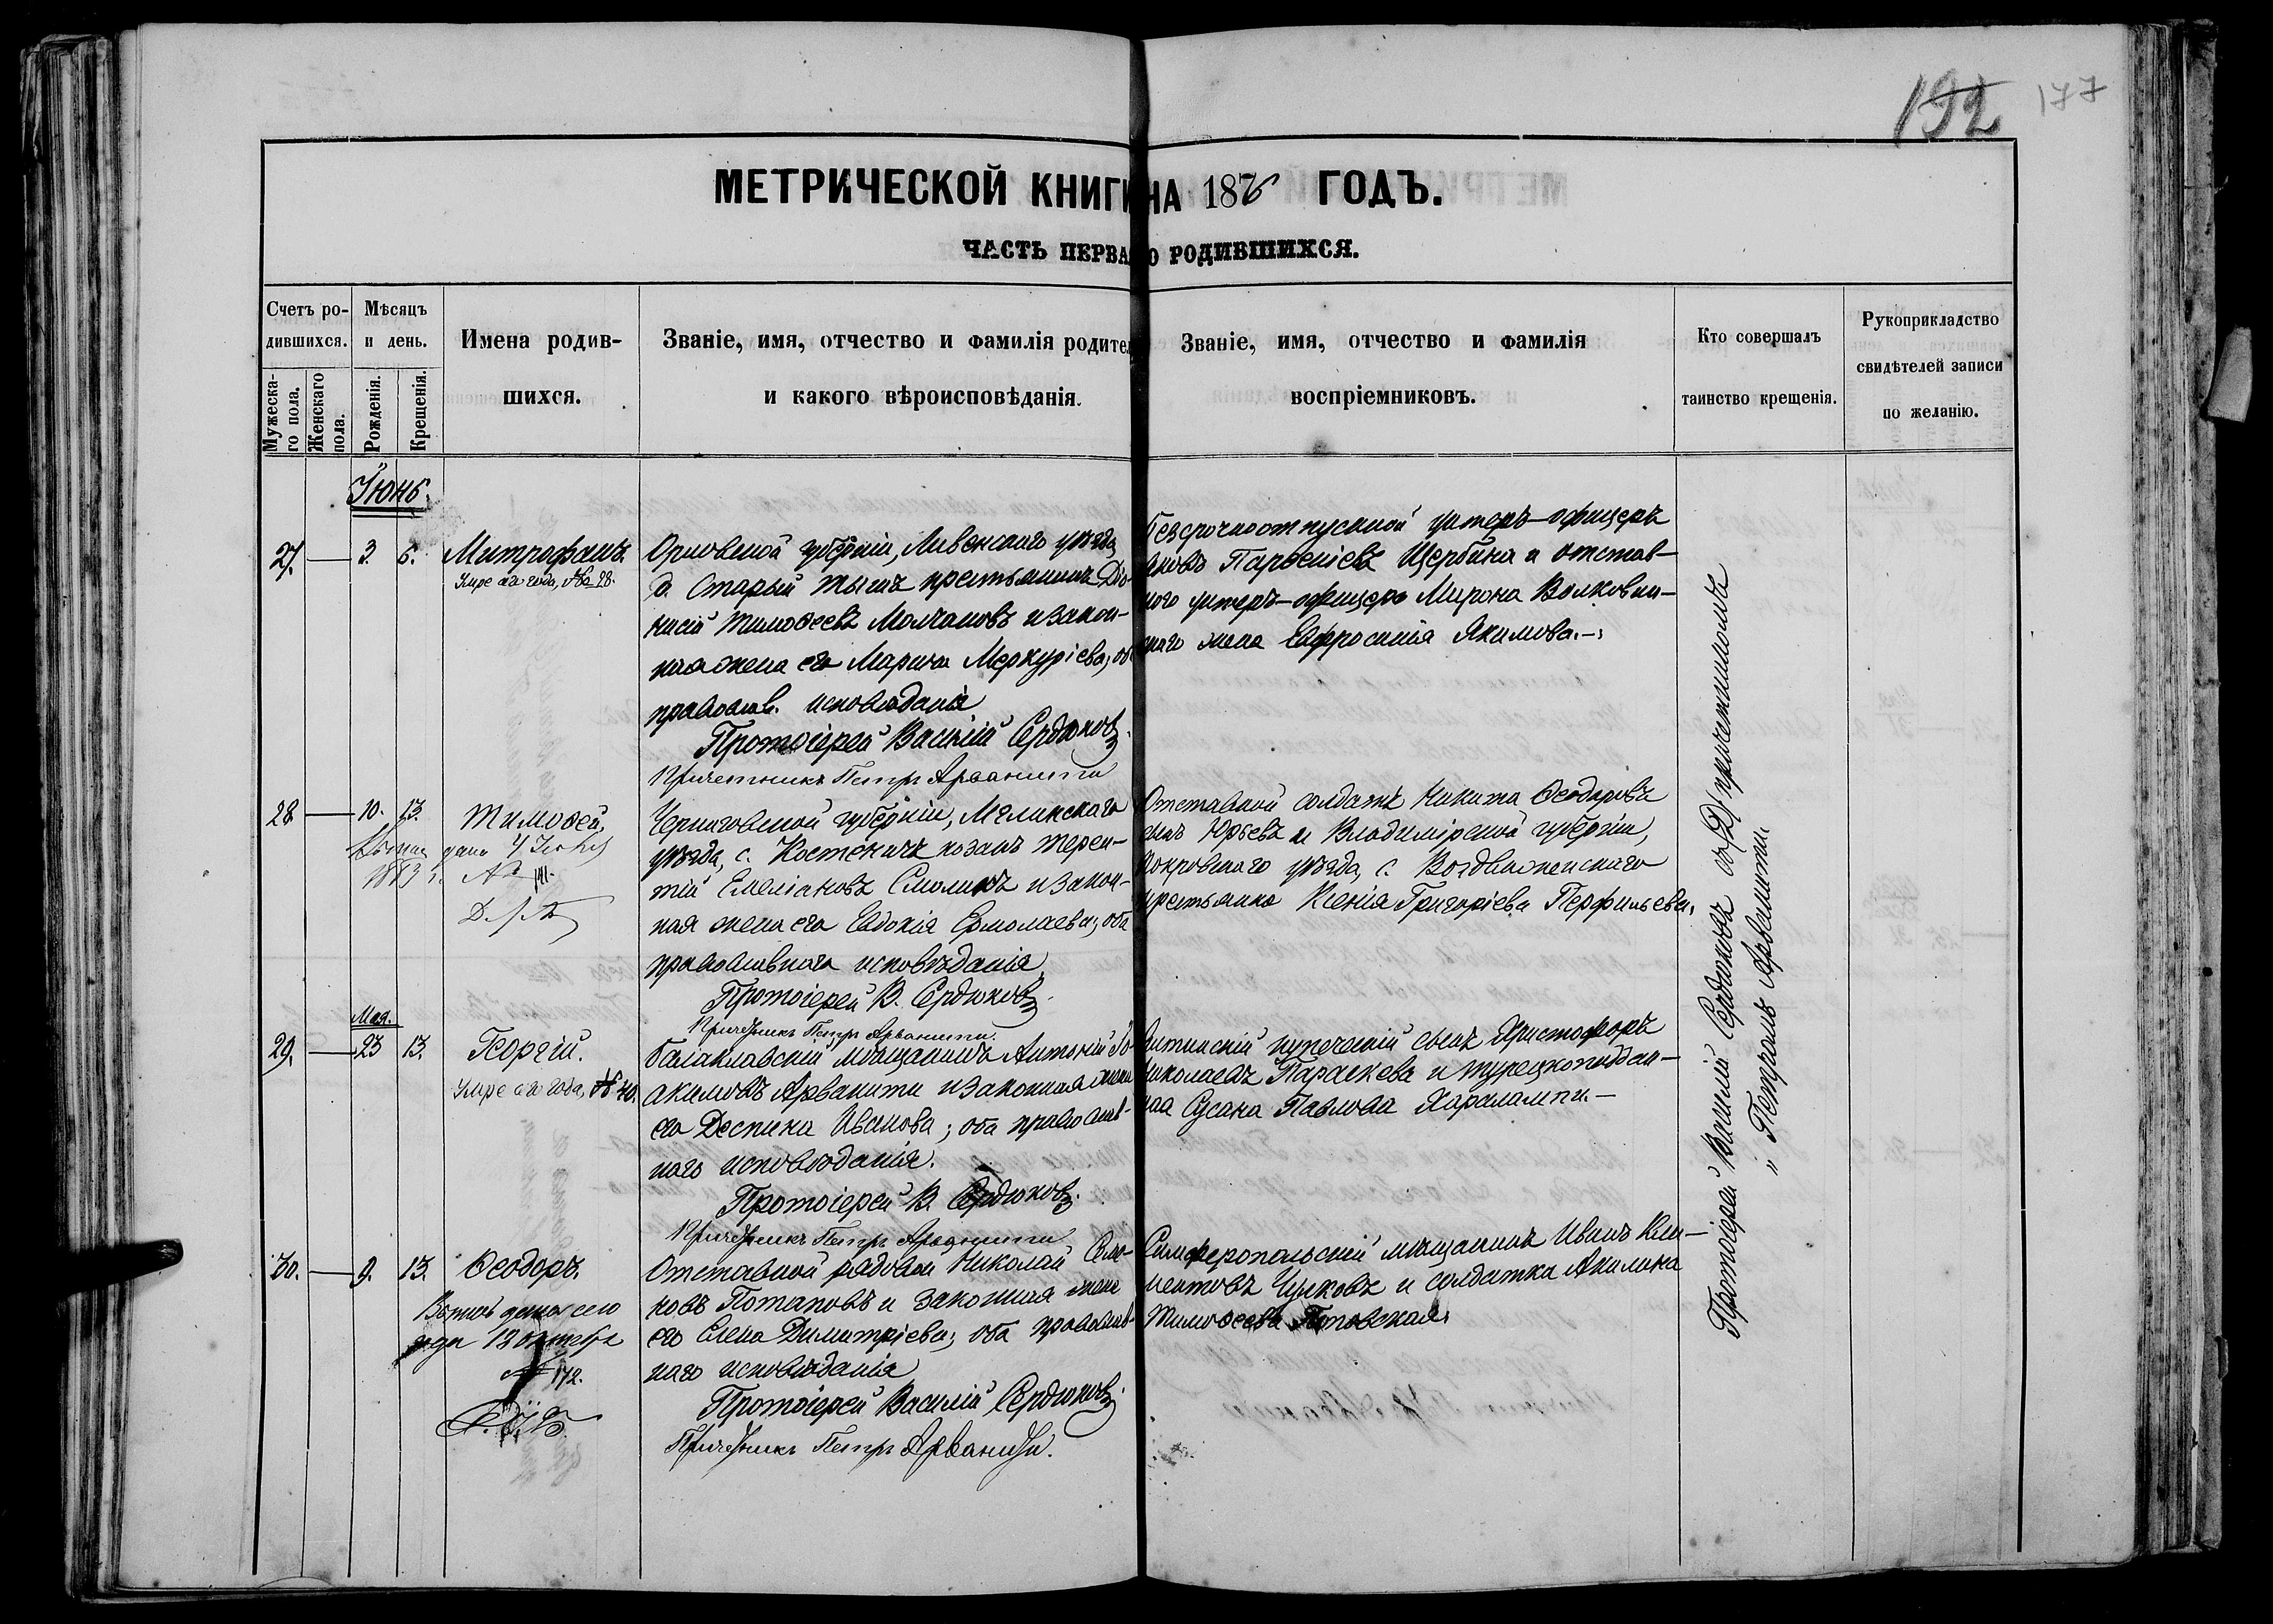 192 177
МЕТРИЧЕСКОЙ КНИГИ НА 1876 ГОДЪ.
ЧАСТЬ ПЕРВАЯ О РОДИВШИХСЯ.
Счетъ ро-
дившихся.
Мужеска-
го пола.
Женскаго
пола.
Мѣсяцъ
и день.
Рожденія.
Крещенія.
Имена родив-
шихся.
Званіе, имя, отчество и фамилія родител
и какого вѣроисповѣданія.
Званіе, имя, отчество и фамилія
воспріемниковъ.
Кто совершалъ
таинство крещенія.
Рукоприкладство
свидѣтелей записи
по желанію.
Іюнь.
27. — 3. 6. Митрофанъ.
Умре сего года, № 28.
Орловской губерніи, Ливенскаго уѣзда,
д. Старый Тымъ крестьянинъ Діо-
нисій Тимоѳеевъ Молчановъ и закон-
ная жена его Марина Меркуріева, оба
православ. исповѣданія
Протоіерей Василій Сердюковъ.
Причетникъ Петръ Арванити
Безсрочноотпускной унтеръ-офицеръ
Парѳеніевъ Щербина и отстав-
ного унтеръ-офицера Мирона Волковин-
скаго жена Евфросинія Якимова.
28. — 10. 13. Тимоѳей.
дана 4
1883 г. № 141.
Черниговской губерніи, Мглинскаго
уѣзда, с. Костеничъ козакъ Терен-
тій Емеліановъ Смоликъ и закон-
ная жена его Евдокія Ермолаева, оба
православнаго исповѣданія,
Протоіерей В. Сердюковъ.
Причетникъ Петръ Арванити.
Отставной солдатъ Никита Ѳеодоровъ
сынъ Юрьевъ и Владимірской губерніи,
Покровскаго уѣзда, с. Воздвиженскаго
крестьянка Ксенія Григоріева Перфильева.
Мая.
29. — 23 13. Георгій.
Умре сего года, № 40.
Балаклавскій мѣщанинъ Антоній Іо-
акимовъ Арванити и законная жена
его Деспина Иванова; оба православ-
наго исповѣданія.
Протоіерей В. Сердюковъ.
Причетникъ Петръ Арванити
Ялтинскій купеческій сынъ Христофоръ
Николаевъ Параскева и турецкоподдан-
ная Сусана Павлова Харалампи.—
30. — 9. 13. Ѳеодоръ.
Выпись дана сего
года 18 октября
№ 172.
Отставной рядовой Николай Симо-
новъ Потаповъ и законная жена
его Елена Димитріева; оба православ-
наго исповѣданія
Протоіерей Василій Сердюковъ.
Причетникъ Петръ Арванити.
Симферопольскій мѣщанинъ Иванъ Кли-
ментовъ Чулковъ и солдатка Акилина
Тимоѳеева
Протоіерей Василій Сердюковъ съ причетникомъ
„ Петромъ Арванити.